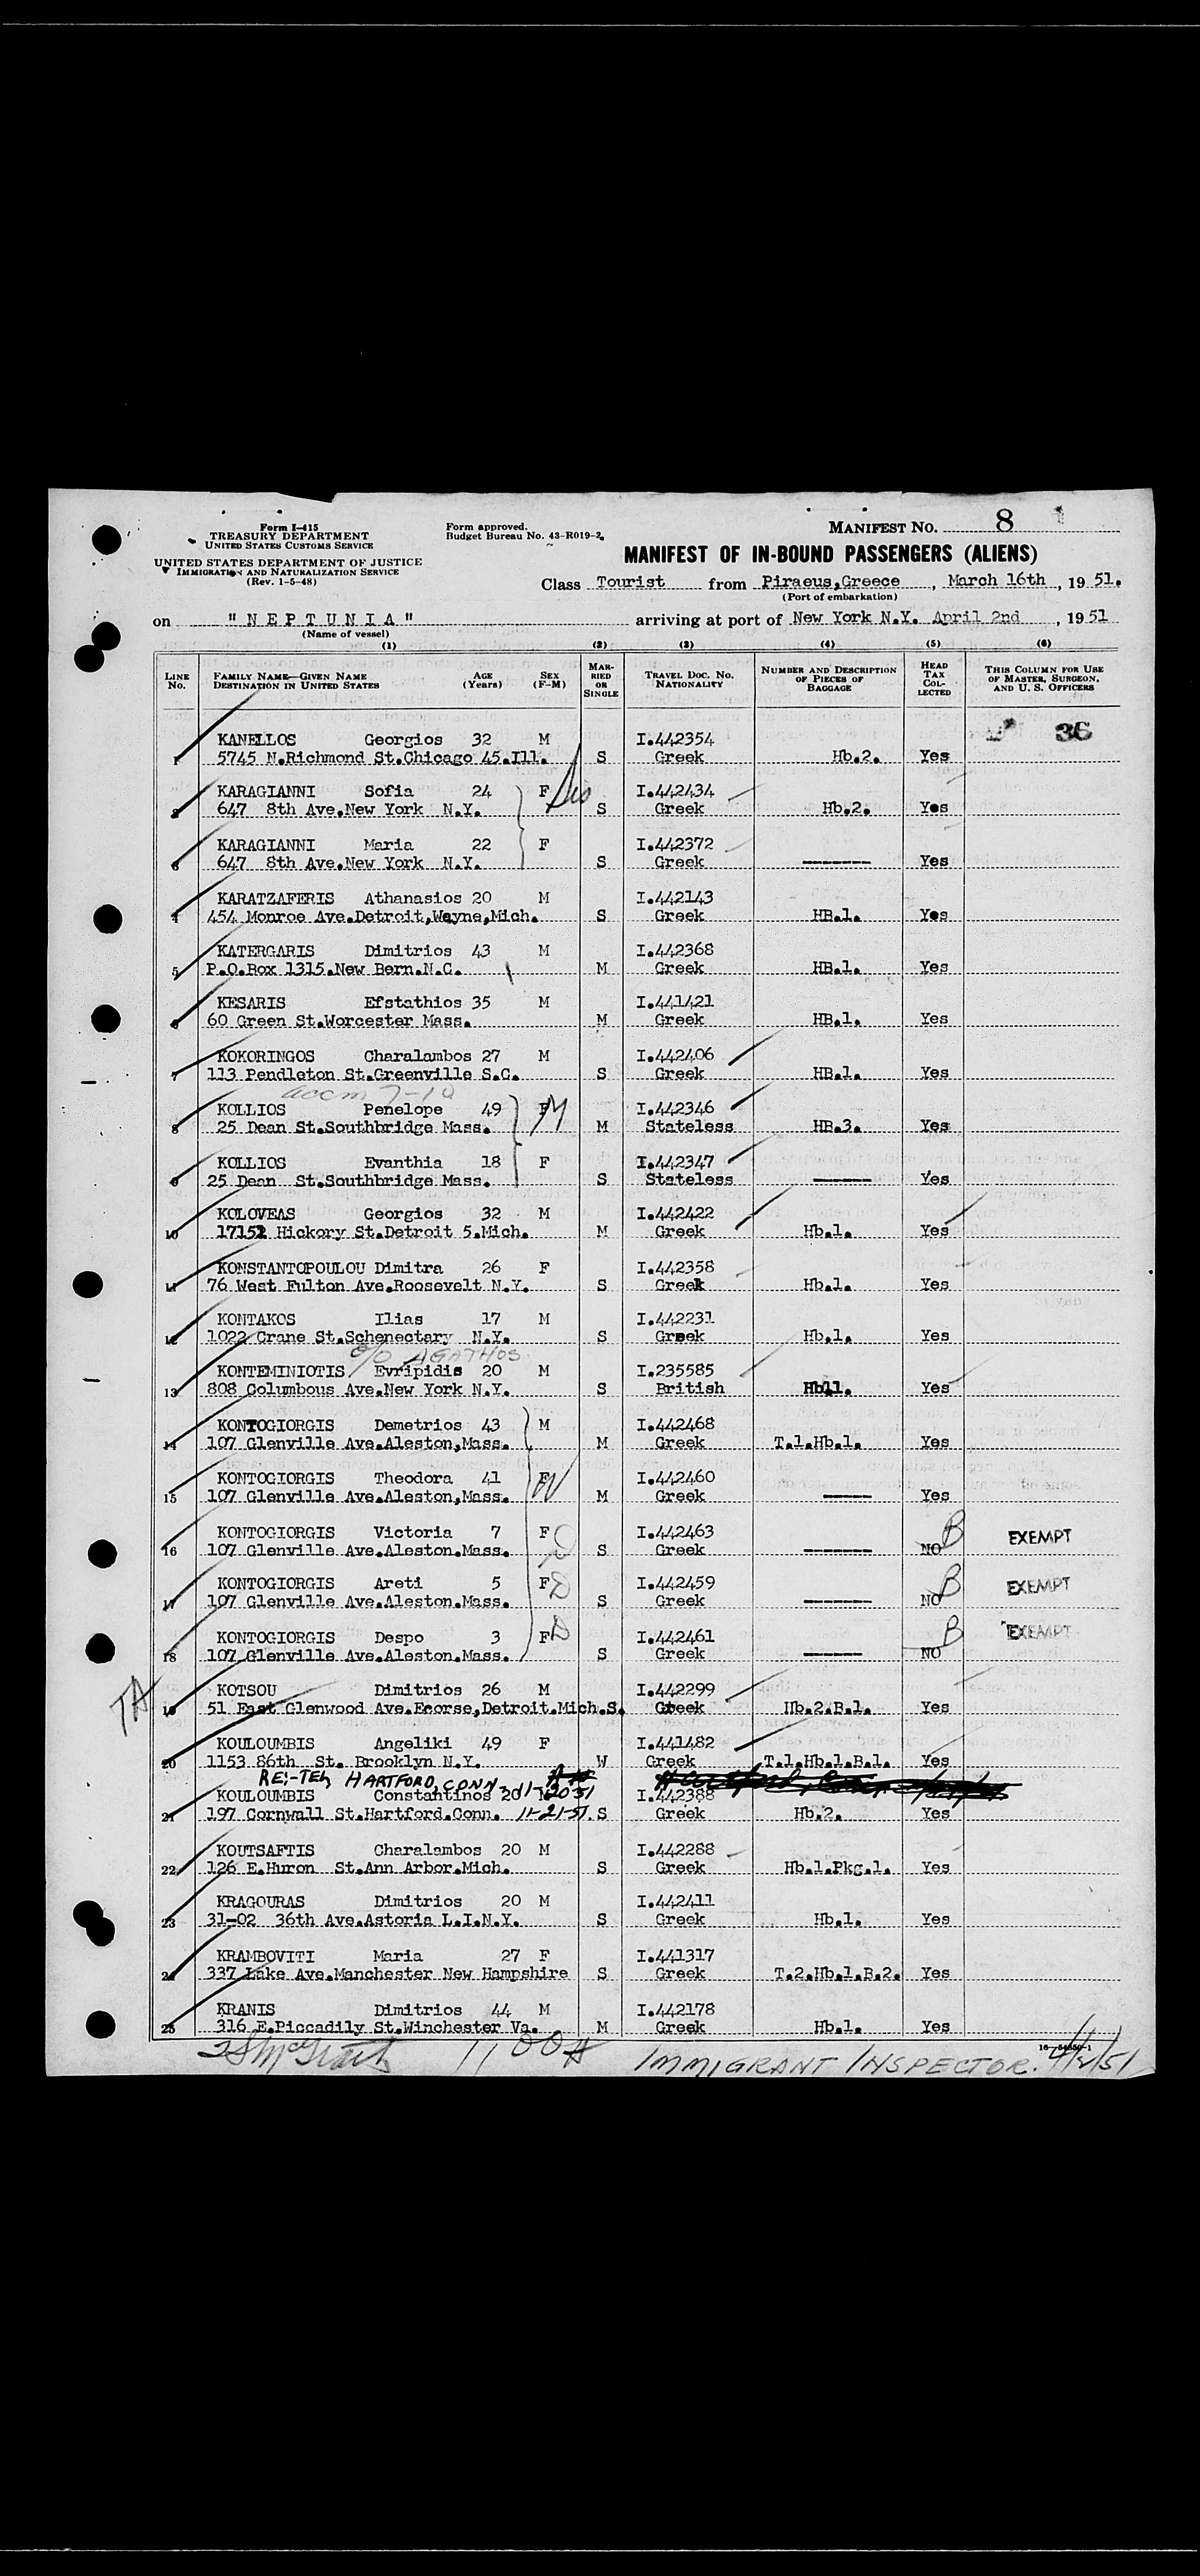 Form I-415
TREASURY DEPARTMENT
UNITED STATES CUSTOMS SERVICE
UNITED STATES DEPARTMENT OF JUSTICE
IMMIGRATION AND NATURALIZATION SERVICE
(Rev. 1-5-48)
Form approved.
Budget Bureau No. 43-R019-2.
MANIFEST NO. 8
MANIFEST OF IN-BOUND PASSENGERS (ALIENS)
Class Tourist from Piraeus,Greece, March 16th, 1951.
(Port of embarkation)
on "NEPTUNIA" arriving at port of New York N.Y. April 2nd, 1951
(Name of vessel)
(1) (2) (3) (4) (5) (6)
LINE NO. FAMILY NAME—GIVEN NAME DESTINATION IN UNITED STATES AGE (Years) SEX (F-M) MARRIED OR SINGLE TRAVEL DOC. NO. NATIONALITY NUMBER AND DESCRIPTION OF PIECES OF BAGGAGE HEAD TAX COLLECTED THIS COLUMN FOR USE OF MASTER, SURGEON, AND U. S. OFFICERS
36
KANELLOS Georgios 32 M I.442354
1 5745 N.Richmond St.Chicago 45.Ill. S Greek Hb.2. Yes
KARAGIANNI Sofia 24 F Sis I.442434
2 647 8th Ave.New York N.Y. S Greek Hb.2. Yes
KARAGIANNI Maria 22 F I.442372
3 647 8th Ave.New York N.Y. S Greek ------- Yes
KARATZAFERIS Athanasios 20 M I.442143
4 454 Monroe Ave.Detroit,Wayne,Mich. S Greek HB.1. Yes
KATERGARIS Dimitrios 43 M I.442368
5 P.O.Box 1315.New Bern.N.C. M Greek HB.1. Yes
KESARIS Efstathios 35 M I.441421
6 60 Green St.Worcester Mass. M Greek HB.1. Yes
KOKORINGOS Charalambos 27 M I.442406
7 113 Pendleton St.Greenville S.C. S Greek HB.1. Yes
accm 7-10
KOLLIOS Penelope 49 F M I.442346
8 25 Dean St.Southbridge Mass. M Stateless HB.3. Yes
KOLLIOS Evanthia 18 F I.442347
9 25 Dean St.Southbridge Mass. S Stateless ------ Yes
KOLOVEAS Georgios 32 M I.442422
10 17152 Hickory St.Detroit 5.Mich. M Greek Hb.1. Yes
KONSTANTOPOULOU Dimitra 26 F I.442358
11 76 West Fulton Ave.Roosevelt N.Y. S Greek Hb.1. Yes
KONTAKOS Ilias 17 M I.442231
12 1022 Crane St.Schenectary N.Y. S Greek Hb.1. Yes
c/o AGATHOS
KONTEMINIOTIS Evripidis 20 M I.235585
13 808 Columbous Ave.New York N.Y. S British Hb11. Yes
KONTOGIORGIS Demetrios 43 M I.442468
14 107 Glenville Ave.Aleston,Mass. M Greek T.1.Hb.1. Yes
KONTOGIORGIS Theodora 41 F W I.442460
15 107 Glenville Ave.Aleston,Mass. M Greek ----- Yes
KONTOGIORGIS Victoria 7 F D I.442463 B EXEMPT
16 107 Glenville Ave.Aleston.Mass. S Greek ------- NO
KONTOGIORGIS Areti 5 F D I.442459 B EXEMPT
17 107 Glenville Ave.Aleston.Mass. S Greek ------- NO
KONTOGIORGIS Despo 3 F D I.442461 B EXEMPT
18 107 Glenville Ave.Aleston.Mass. S Greek ------ NO
TA
KOTSOU Dimitrios 26 M I.442299
19 51 East Glenwood Ave.Ecorse,Detroit.Mich.S. Greek Hb.2.B.1. Yes
KOULOUMBIS Angeliki 49 F I.441482
20 1153 86th St. Brooklyn N.Y. W Greek T.1.Hb.1.B.1. Yes
RE:-TEL HARTFORD, CONN, 11-20-51
KOULOUMBIS Constantinos 20 M I.442388
21 197 Cornwall St.Hartford.Conn. 11-21-51. S Greek Hb.2. Yes
KOUTSAFTIS Charalambos 20 M I.442288
22 126 E.Huron St.Ann Arbor.Mich. S Greek Hb.1.Pkg.1. Yes
KRAGOURAS Dimitrios 20 M I.442411
23 31-02 36th Ave.Astoria L.I.N.Y. S Greek Hb.1. Yes
KRAMBOVITI Maria 27 F I.441317
24 337 Lake Ave.Manchester New Hampshire S Greek T.2.Hb.1.B.2. Yes
KRANIS Dimitrios 44 M I.442178
25 316 E.Piccadily St.Winchester Va. M Greek Hb.1. Yes
IMMIGRANT INSPECTOR. 4/2/51